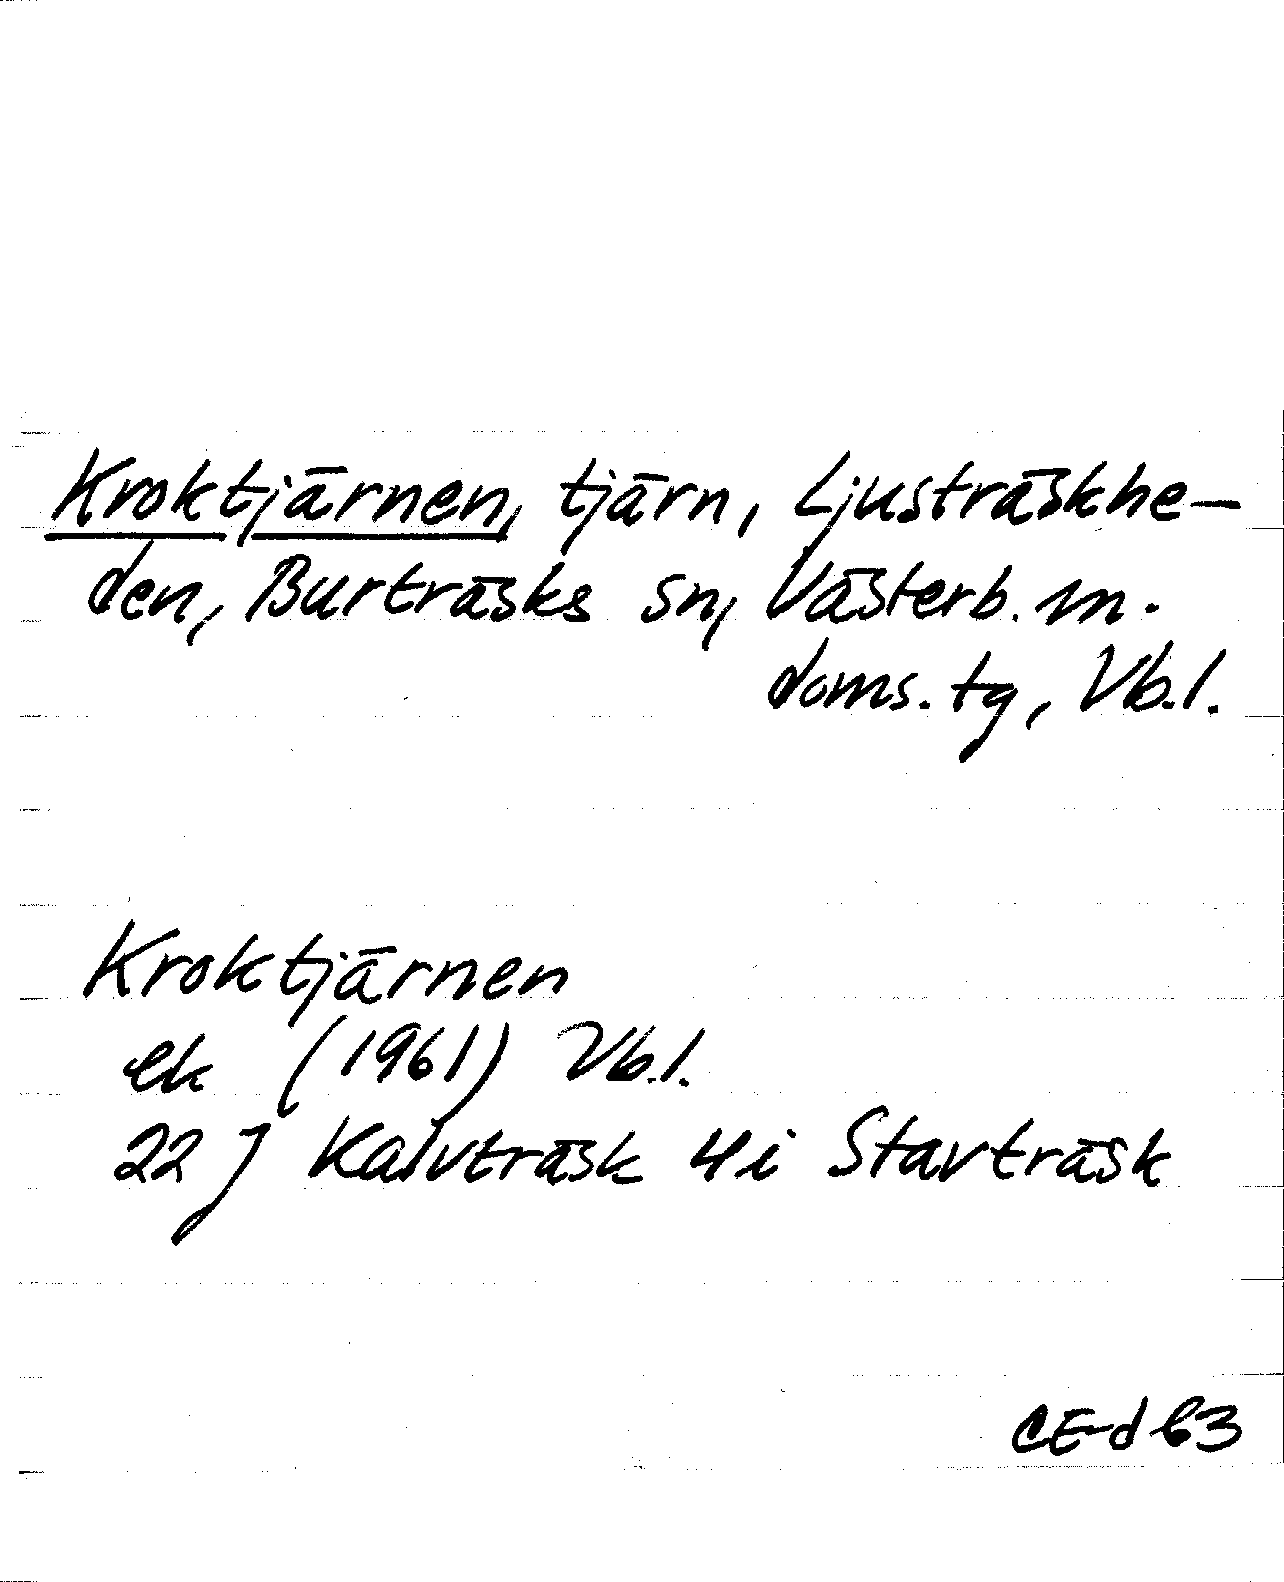 Kroktjärnen, tjärn, Ljusträskhe-
den, Burträsks sn, Västerb. m.
doms. tg, Vb.l.
Kroktjärnen
ek (1961) Vb.l.
22 J Kalvträsk 4i Stavträsk
CE-d 63